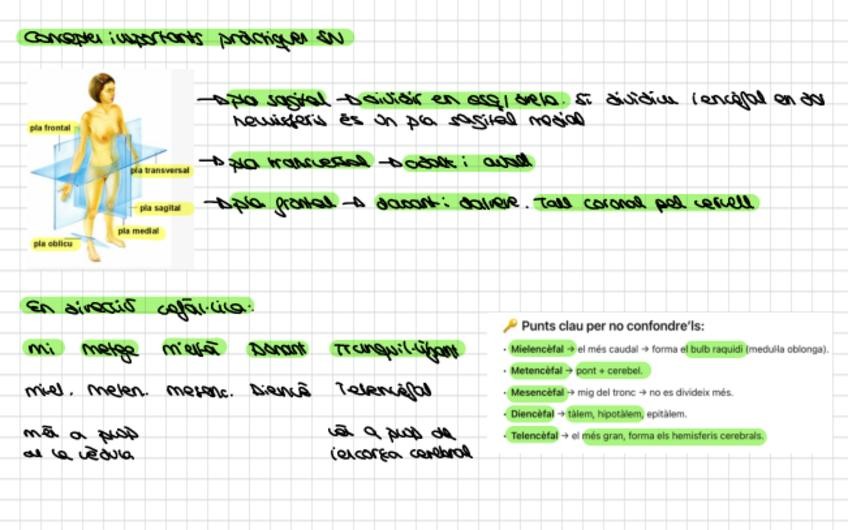 Conceptes importants pràctiques SN
pla frontal
pla transversal
pla sagital
pla medial
pla oblicu
→ pla sagital → dividir en esq/dreta. Si dividim l'encèfal en dos
hemisferis és un pla sagital medial
→ pla transversal → adalt i avall
→ pla frontal → davant i darrere. Tall coronal pel cervell
En direcció cefàl·lica:
Mi metge m'està Donant Tranquil·litzant
miel. meten. mesenc. Diencè Telencèfal
més a prop
de la mèdula
més a prop de
l'escorça cerebral
🔑 Punts clau per no confondre'ls:
• Mielencèfal → el més caudal → forma el bulb raquidi (medul·la oblonga).
• Metencèfal → pont + cerebel.
• Mesencèfal → mig del tronc → no es divideix més.
• Diencèfal → tàlem, hipotàlem, epitàlem.
• Telencèfal → el més gran, forma els hemisferis cerebrals.